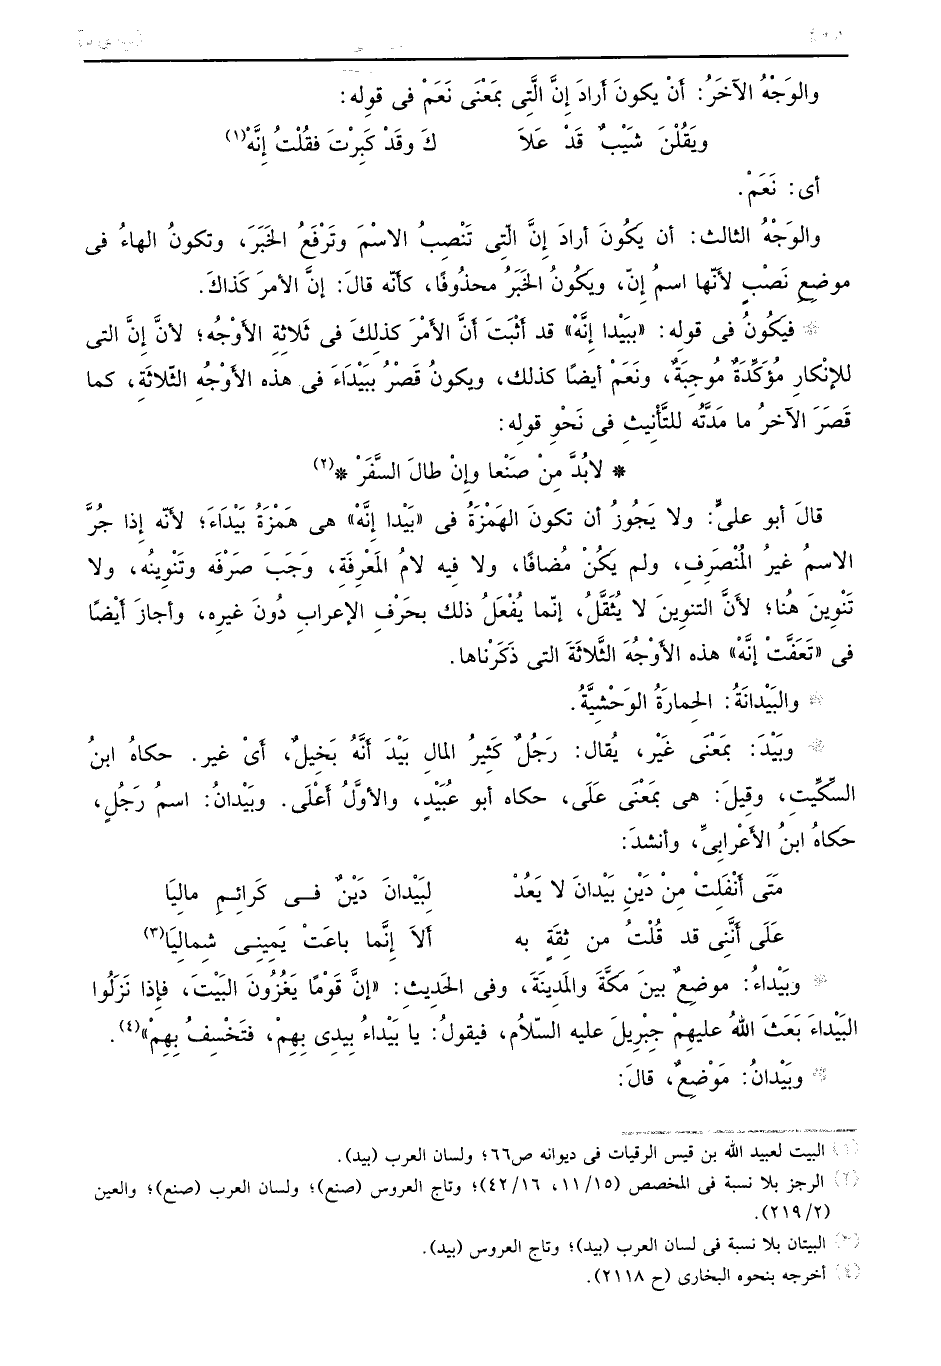 والوَجْهُ الآخَرُ: أَنْ يكونَ أرادَ إِنَّ الَّتِى بمَعْنَى نَعَمْ فى قوله:
ويَقُلْنَ شَيْبٌ قَدْ عَلاَ كَ وقَدْ كَبِرْتَ فقُلْتُ إِنَّهْ(١)
أى: نَعَمْ.
والوَجْهُ الثالث: أن يكُونَ أرادَ إِنَّ الّتِى تَنْصِبُ الاسْمَ وتَرْفَعُ الخَبَرَ، وتكونُ الهاءُ فى
موضعِ نَصْبٍ لأنّها اسمُ إِنّ، ويكُونُ الخَبَرُ محذُوفًا، كأنّه قالَ: إِنَّ الأمرَ كَذاكَ.
* فيَكُونُ فى قوله: «ببَيْدا إِنَّهْ» قد أَثْبَتَ أَنَّ الأَمْرَ كذلكَ فى ثَلاثَةِ الأَوْجُه؛ لأنَّ إِنَّ التى
للإنْكارِ مؤكِّدَةٌ مُوجِبَةٌ، ونَعَمْ أيضًا كذلك، ويكونُ قَصْرُ ببَيْدَاءَ فى هذه الأَوْجُهِ الثّلاثَةِ، كما
قَصَرَ الآخرُ ما مَدَّتُه للتَّأْنيثِ فى نَحْوِ قوله:
* لابُدَّ مِنْ صَنْعا وإِنْ طالَ السَّفَرْ *(٢)
قالَ أبو علىٍّ: ولا يَجُوزُ أن تكونَ الهَمْزَةُ فى «بَيْدا إِنَّهْ» هى هَمْزَةُ بَيْدَاءَ؛ لأنّه إذا جُرَّ
الاسمُ غيرُ المُنْصَرِفِ، ولم يكُنْ مُضافًا، ولا فيه لامُ المَعْرِفَةِ، وَجَبَ صَرْفُه وتَنْوِينُه، ولا
تَنْوِينَ هُنا؛ لأنَّ التنوينَ لا يُثَقَّلُ، إنّما يُفْعَلُ ذلك بحَرْفِ الإعرابِ دُونَ غيرِه، وأجازَ أَيْضًا
فى «تَعَفَّتْ إِنَّهْ» هذه الأَوْجُهَ الثَّلاثَةَ التى ذَكَرْناها.
* والبَيْدانَةُ: الحِمارَةُ الوَحْشِيَّةُ.
* وبَيْدَ: بمَعْنَى غَيْر، يُقال: رَجُلٌ كَثِيرُ المالِ بَيْدَ أَنَّهُ بَخِيلٌ، أىْ غير. حكاهُ ابنُ
السكِّيتِ، وقِيلَ: هى بمَعْنَى عَلَى، حكاه أبو عُبَيْدٍ، والأوَّلُ أَعْلَى. وبَيْدانُ: اسمُ رَجُلٍ،
حكاهُ ابنُ الأَعْرابىِّ، وأنشدَ:
مَتَى أَنْفَلِتْ مِنْ دَيْنِ بَيْدانَ لا يَعُدْ لبَيْدانَ دَيْنٌ فــى كَرَائــمِ ماليَا
عَلَى أنَّنى قد قُلْتُ من ثقَةٍ به ألاَ إنَّما باعَتْ يَمِينِـى شِماليَا(٣)
* وبَيْداءُ: موضعٌ بينَ مَكَّةَ والمَدِينَةِ، وفى الحَدِيث: «إنَّ قَوْمًا يَغْزُونَ البَيْتَ، فإذا نَزَلُوا
البَيْداءَ بَعَثَ اللهُ عليهِمْ جِبْرِيلَ عليه السّلامُ، فيقولُ: يا بَيْداءُ بِيدِى بِهِمْ، فتَخْسِفُ بِهِمْ»(٤).
* وبَيْدانُ: مَوْضِعٌ، قالَ:
(١) البيت لعبيد الله بن قيس الرقيات فى ديوانه ص٦٦؛ ولسان العرب (بيد).
(٢) الرجز بلا نسبة فى المخصص (١١/١٥، ٤٢/١٦)؛ وتاج العروس (صنع)؛ ولسان العرب (صنع)؛ والعين
(٢١٩/٢).
(٣) البيتان بلا نسبة فى لسان العرب (بيد)؛ وتاج العروس (بيد).
(٤) أخرجه بنحوه البخارى (ح ٢١١٨).